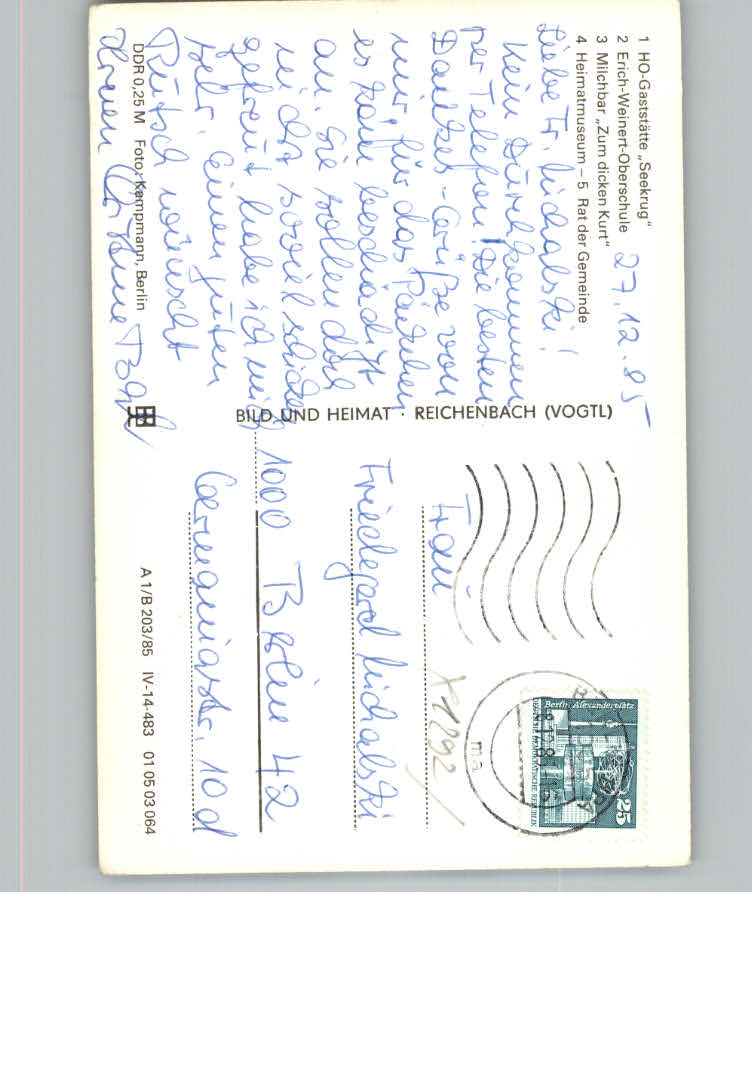 1 HO-Gaststätte „Seekrug"
2 Erich-Weinert-Oberschule
3 Milchbar „Zum dicken Kurt"
4 Heimatmuseum – 5 Rat der Gemeinde
27.12.85
Liebe Fr. Michalski!
Kein Durchkommen
per Telefon! Die besten
Dankes-Grüße von
mir, für das Päckchen
es kam beschädigt
an. Sie sollen doch
nicht soviel schicken
gefreut habe ich mich
sehr. Einen guten
Rutsch wünscht
Ihnen
DDR 0,25 M Foto: Kampmann, Berlin
BILD UND HEIMAT · REICHENBACH (VOGTL)
Frau
Friedegard Michalski
1000 Berlin 42
Germaniastr. 10d
A 1/B 203/85 IV-14-483 01 05 03 064
X1892
Berlin, Alexanderplatz
25